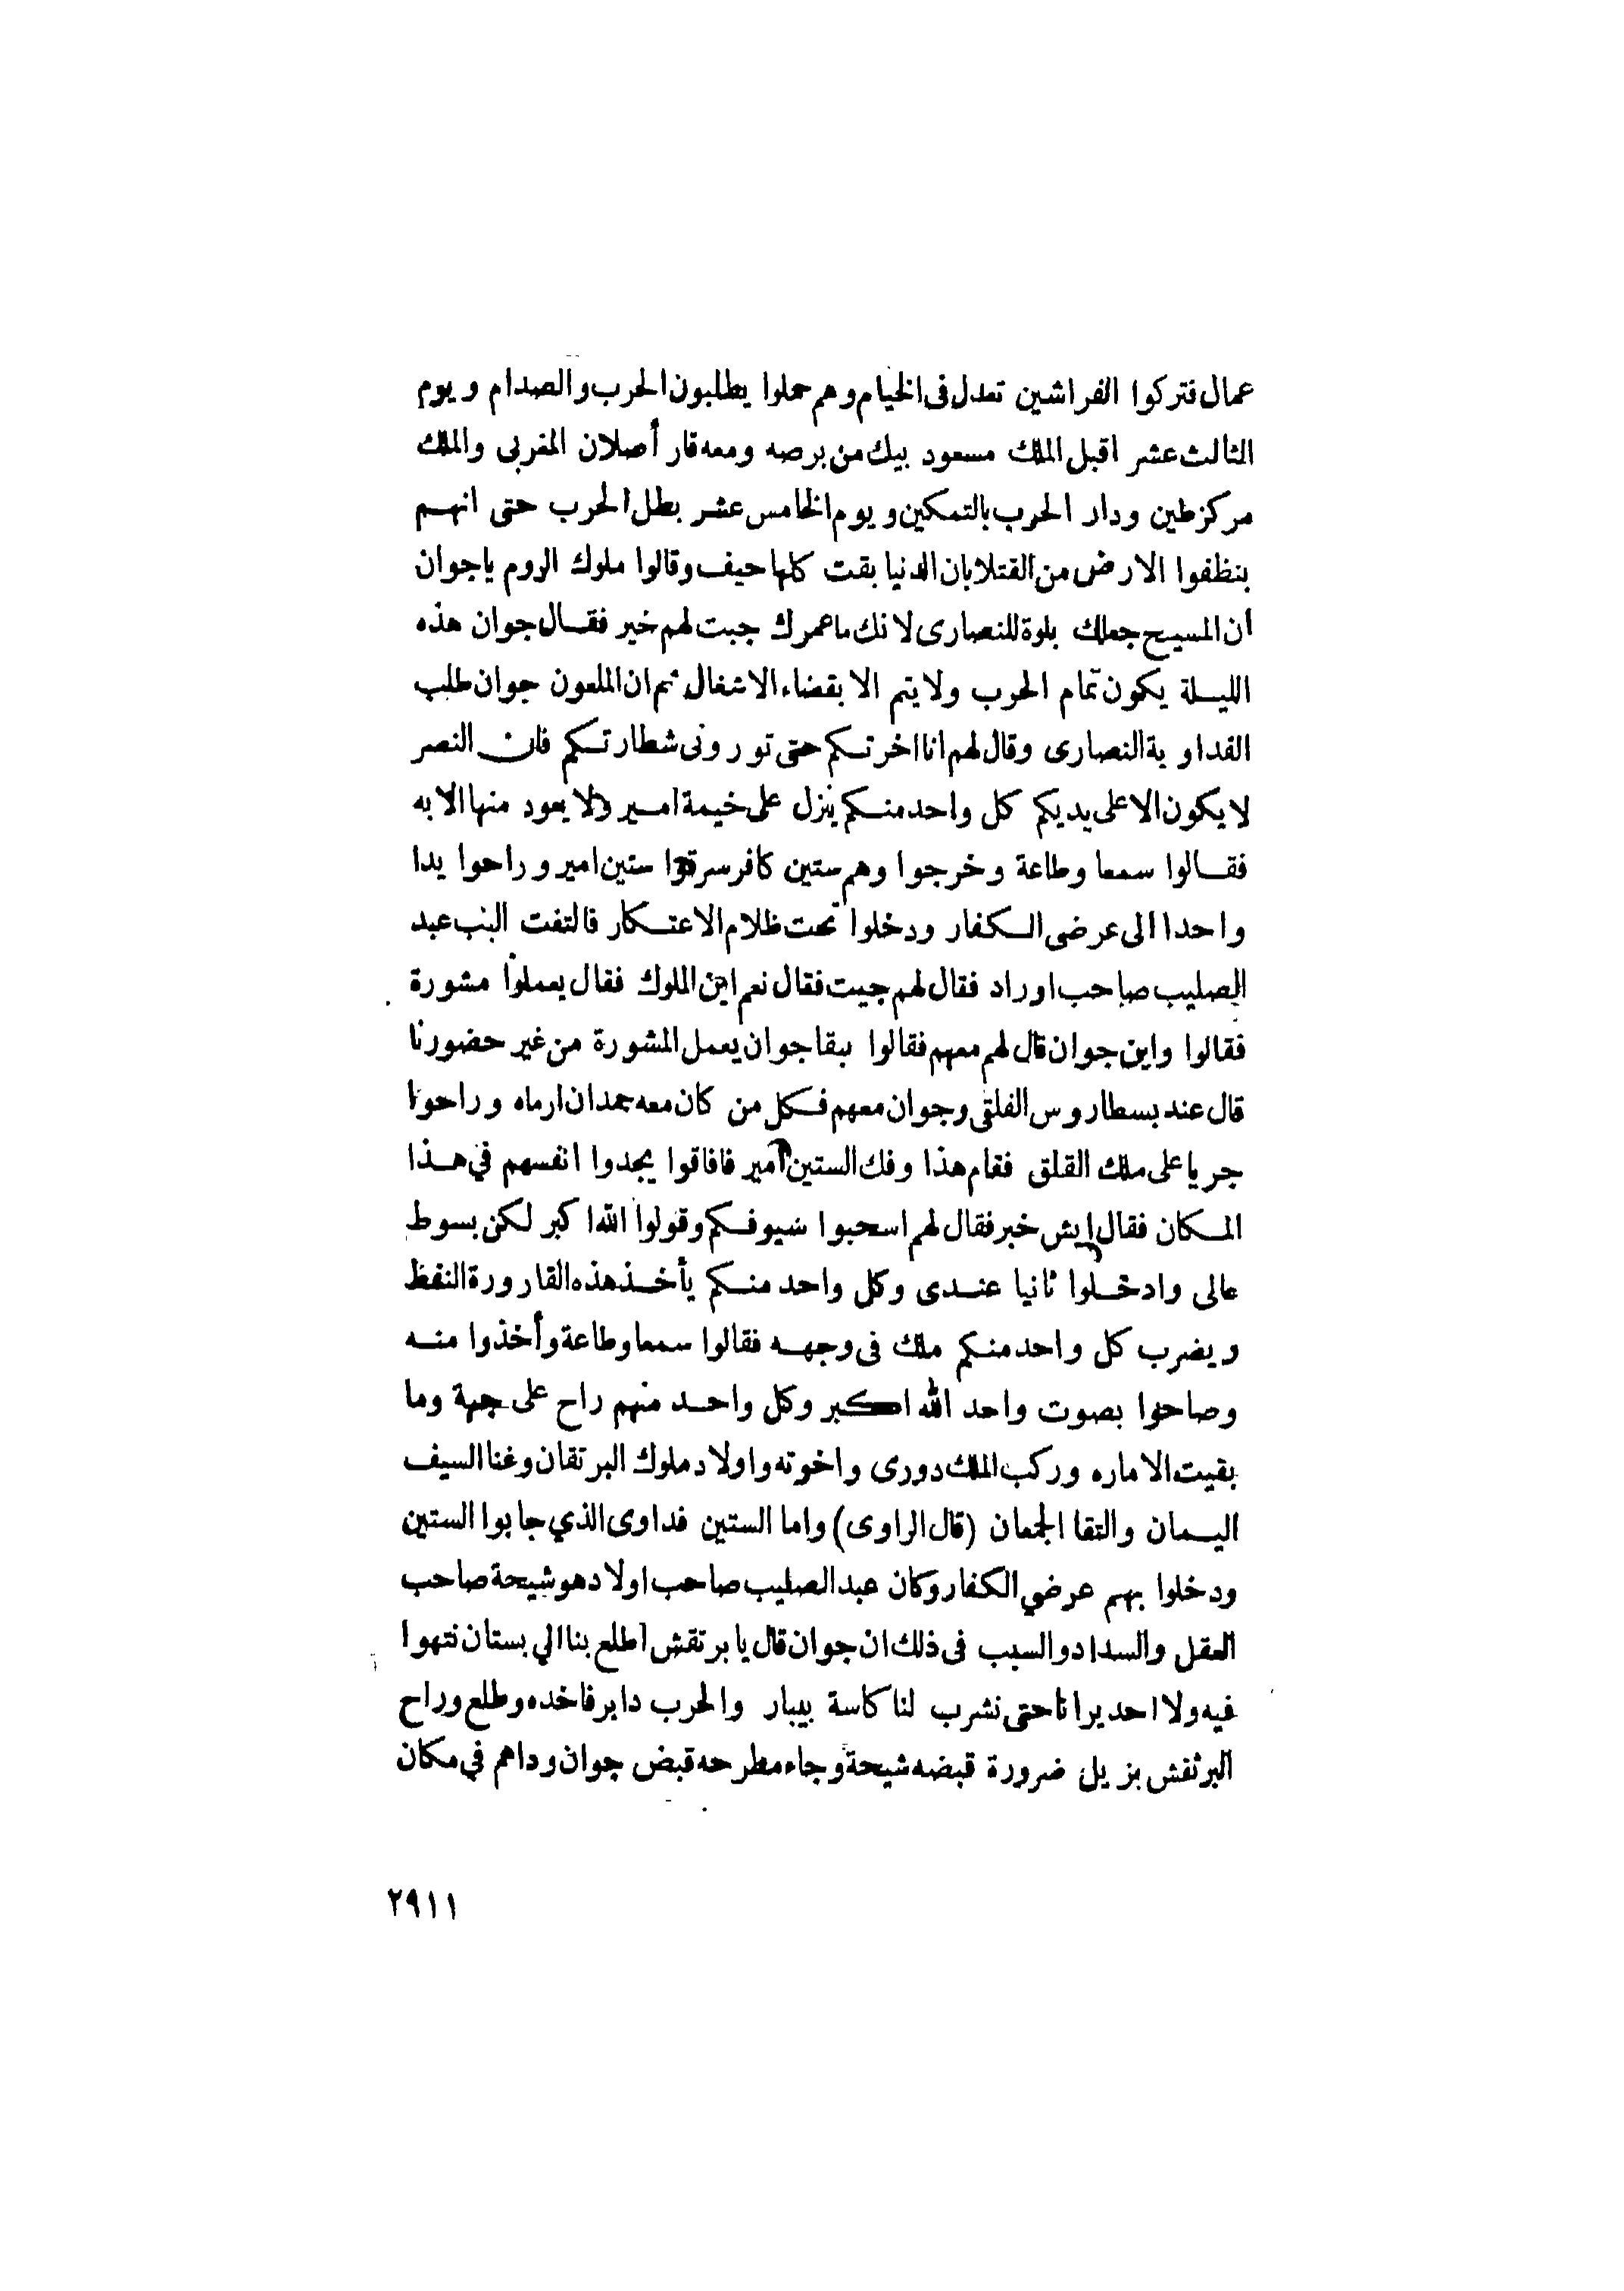 عمال فتركوا الفراشين تعدل فى الخيام وهم حملوا يطلبون الحرب والصدام ويوم
الثالث عشر اقبل الملك مسعود بيك من برصه ومعه قار أصلان المغربى والملك
مركزطين ودار الحرب بالتمكين ويوم الخامس عشر بطل الحرب حتى انهم
بنظفوا الارض من القتلا بان الدنيا بقت كلها حيف وقالوا ملوك الروم ياجوان
أن المسيح جعلك بلوة للنصارى لانك ماعمرك جبت لهم خير فقال جوان هذه
الليلة يكون تمام الحرب ولا يتم الا بقضاء الاشغال ثم ان الملعون جوان طلب
الفداوية النصارى وقال لهم انا اخرتكم حتى تورونى شطارتكم فان النصر
لا يكون الا على يديكم كل واحد منكم ينزل على خيمة امير ولا يعود منها الا به
فقالوا سمعا وطاعة وخرجوا وهم ستين كافر سرقوا ستين امير وراحوا يدا
واحدا الى عرضى الكفار ودخلوا تحت ظلام الاعتكار فالتفت البب عبد
الصليب صاحب اوراد فقال لهم جيت فقال نعم اين الملوك فقال يعملوا مشورة
فقالوا واين جوان قال لهم معهم فقالوا ببقا جوان يعمل المشورة من غير حضورنا
قال عند بسطاروس الفلقى وجوان معهم فكل من كان معه حمدان ارماه وراحوا
جريا على ملك القلق فقام هذا وفك الستين أمير فافاقوا يجدوا انفسهم في هذا
المكان فقال إيش خبر فقال لهم اسحبوا سيوفكم وقولوا الله اكبر لكن بسوط
عالى وادخلوا ثانيا عندى وكل واحد منكم يأخذ هذه القارورة النفظ
ويضرب كل واحد منكم ملك فى وجهه فقالوا سمعا وطاعة وأخذوا منه
وصاحوا بصوت واحد الله اكبر وكل واحد منهم راح على جهة وما
بقيت الاماره وركب الملك دورى واخوته واولاد ملوك البرتقان وغنا السيف
اليمان والتقا الجمعان (قال الراوى) واما الستين فداوى الذي جابوا الستين
ودخلوا بهم عرضي الكفار وكان عبد الصليب صاحب اولاد هو شيحة صاحب
العقل والسداد والسبب فى ذلك ان جوان قال يا برتقش اطلع بنا الي بستان نتهوا
فيه ولا احد يرانا حتى نشرب لنا كاسة بيبار والحرب داير فاخده وطلع وراح
البرثفش بزيل ضرورة قبضه شيحة وجاء مطرحه قبض جوان وداهم في مكان
٢٩١١